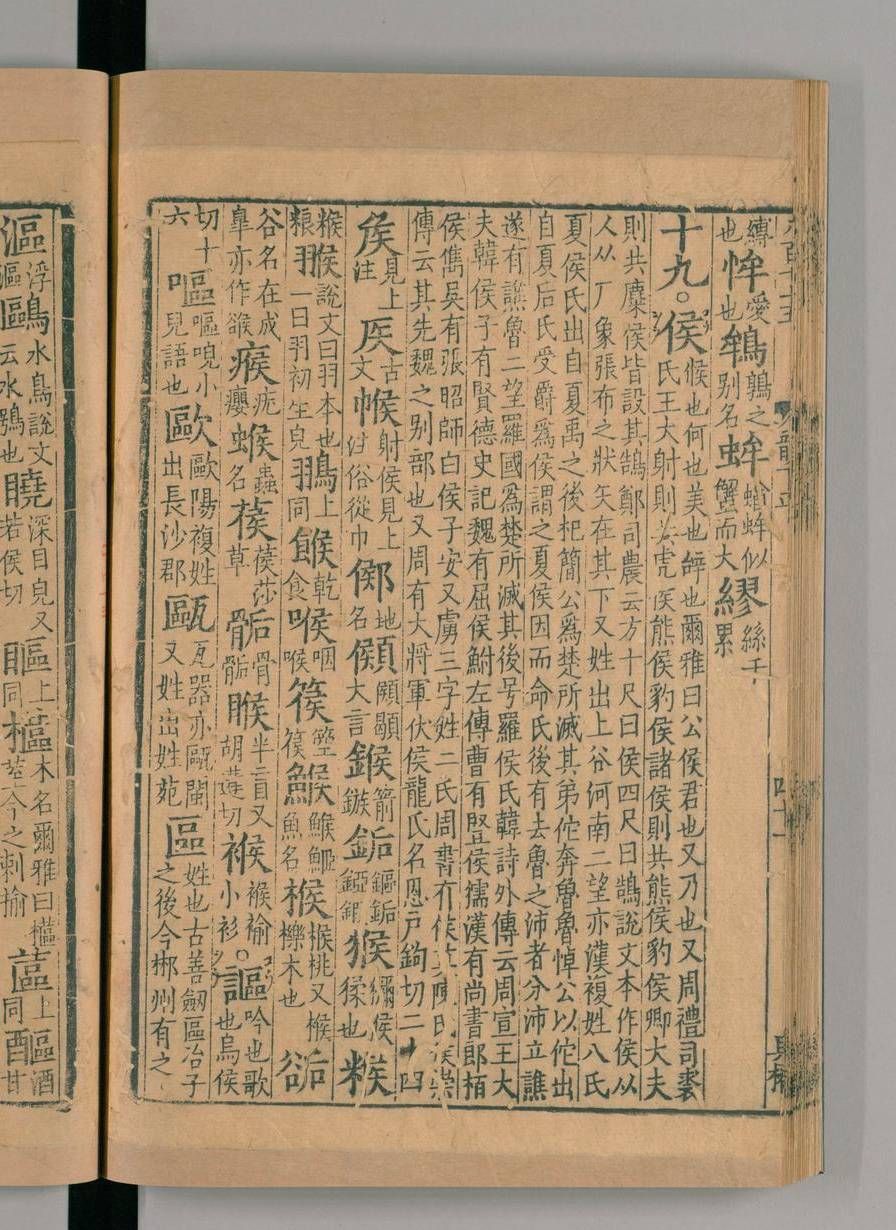 縳也恈愛也䳾鶉之别名蛑蝤蛑似蟹而大繆絲千累
十九。侯候也何也美也辝也爾雅曰公侯君也又乃也又周禮司裘
氏王大射則共虎侯熊侯豹侯諸侯則共熊侯豹侯卿大夫
則共麋侯皆設其鵠鄭司農云方十尺曰侯四尺曰鵠說文本作矦从
人从厂象張布之狀矢在其下又姓出上谷河南二望亦漢複姓八氏
夏侯氏出自夏禹之後杞簡公爲楚所滅其弟佗奔魯魯悼公以佗出
自夏后氏受爵爲侯謂之夏侯因而命氏後有去魯之沛者分沛立譙
遂有譙魯二望羅國爲楚所滅其後号羅侯氏韓詩外傳云周宣王大
夫韓侯子有賢德史記魏有屈侯鮒左傳曹有豎侯獳漢有尚書郎栢
侯儁吳有張昭師白侯子安又虜三字姓二氏周書
傳云其先魏之别部也又周有大將軍伏侯龍氏名恩戶鉤切二十四
矦見上注𥎦古文帿射侯見上注俗從巾鄇地名𩔞大言鍭箭鏃鮜猴獼侯猱也糇
糇粮翭說文曰羽本也一曰羽初生皃翵上同餱乾食喉咽喉篌箜篌鯸鯸鮔魚名㮢㮢桃又㮢櫟木也𧮶
谷名在成皐亦作鄇瘊疣癭𧎥蟲名葔葔莎草𩨭骨𩨭睺半盲又胡遘切𧛻𧛻褕小衫。謳吟也歌也烏侯
切十六嘔嘔唲小兒語也歐歐陽複姓出長沙郡甌瓦器亦甌閩又姓出姓苑區姓也古善劒區冶子之後今郴州有之
漚浮漚鷗水鳥說文云水鴞也䁱深目皃又若侯切䁱上同櫙木名爾雅曰櫙荎今之刺榆蓲上同醧酒甘